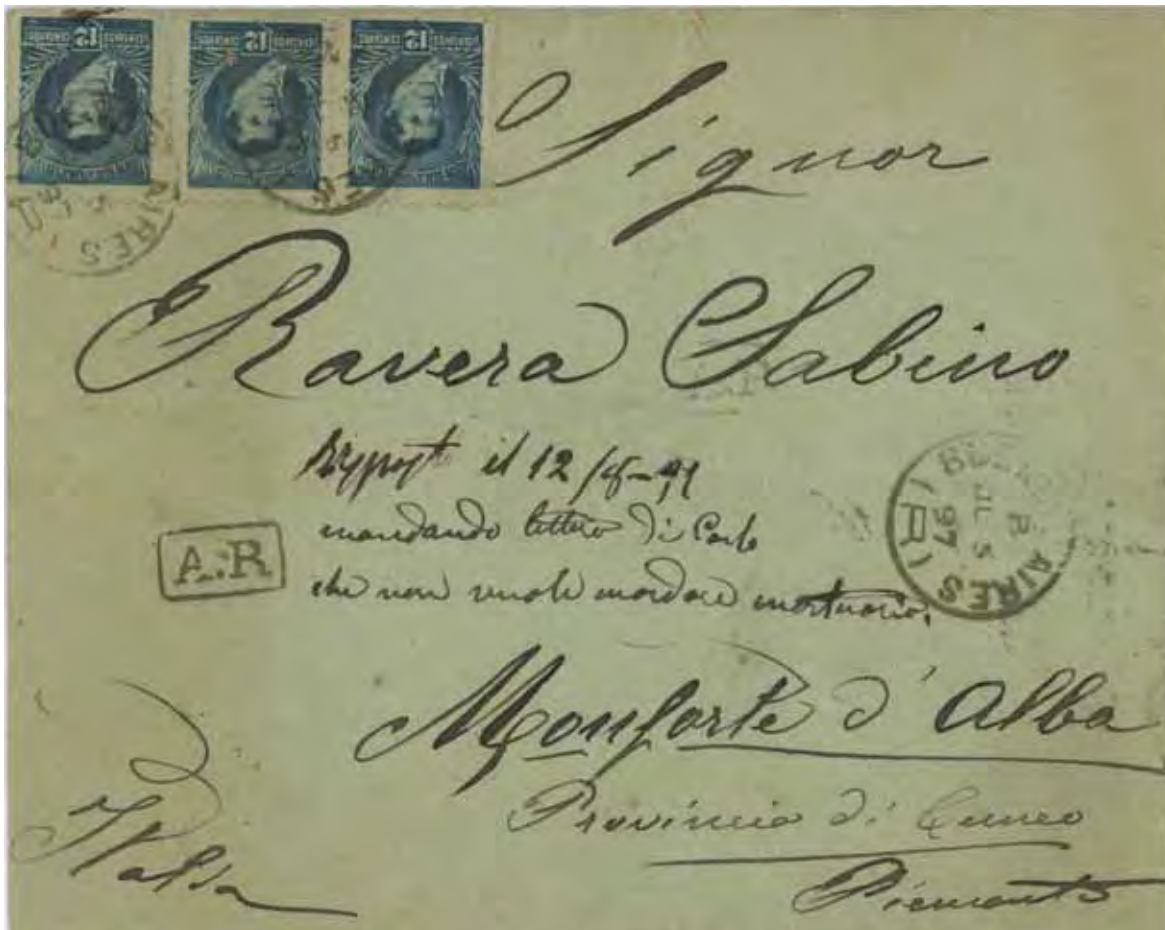 12 12 12
CENTAVOS CENTAVOS CENTAVOS
AIRES
Signor
Ravera Sabino
il 12/8-97
mandando lettera di Carlo
che non vuole mandare mortuario.
A.R
BUENOS AIRES
JL 5
97
R
Monforte d'Alba
Provincia di Cuneo
Piemonte
Italia